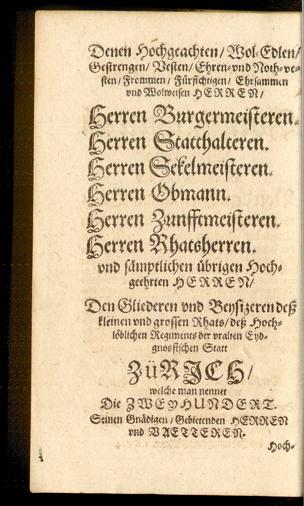 Denen Hochgeachten/ Wol-Edlen/
Gestrengen/ Vesten/ Ehren- vnd Noth-ve-
sten/ Frommen/ Fürsichtigen/ Ehrsammen
vnd Wolweisen HERREN/
Herren Burgermeisteren.
Herren Statthalteren.
Herren Sekelmeisteren.
Herren Obmann.
Herren Zunfftmeisteren.
Herren Rhatsherren.
vnd sämptlichen übrigen Hoch-
geehrten HERREN/
Den Gliederen vnd Beysizeren deß
kleinen vnd grossen Rhats/ deß Hoch-
löblichen Regiments der vralten Eyd-
gnoßischen Statt
ZüRJCH/
welche man nennet
Die ZWEYHUNDERT.
Seinen Gnädigen/ Gebietenden HERREN
vnd VAETTEREN.
Hoch-